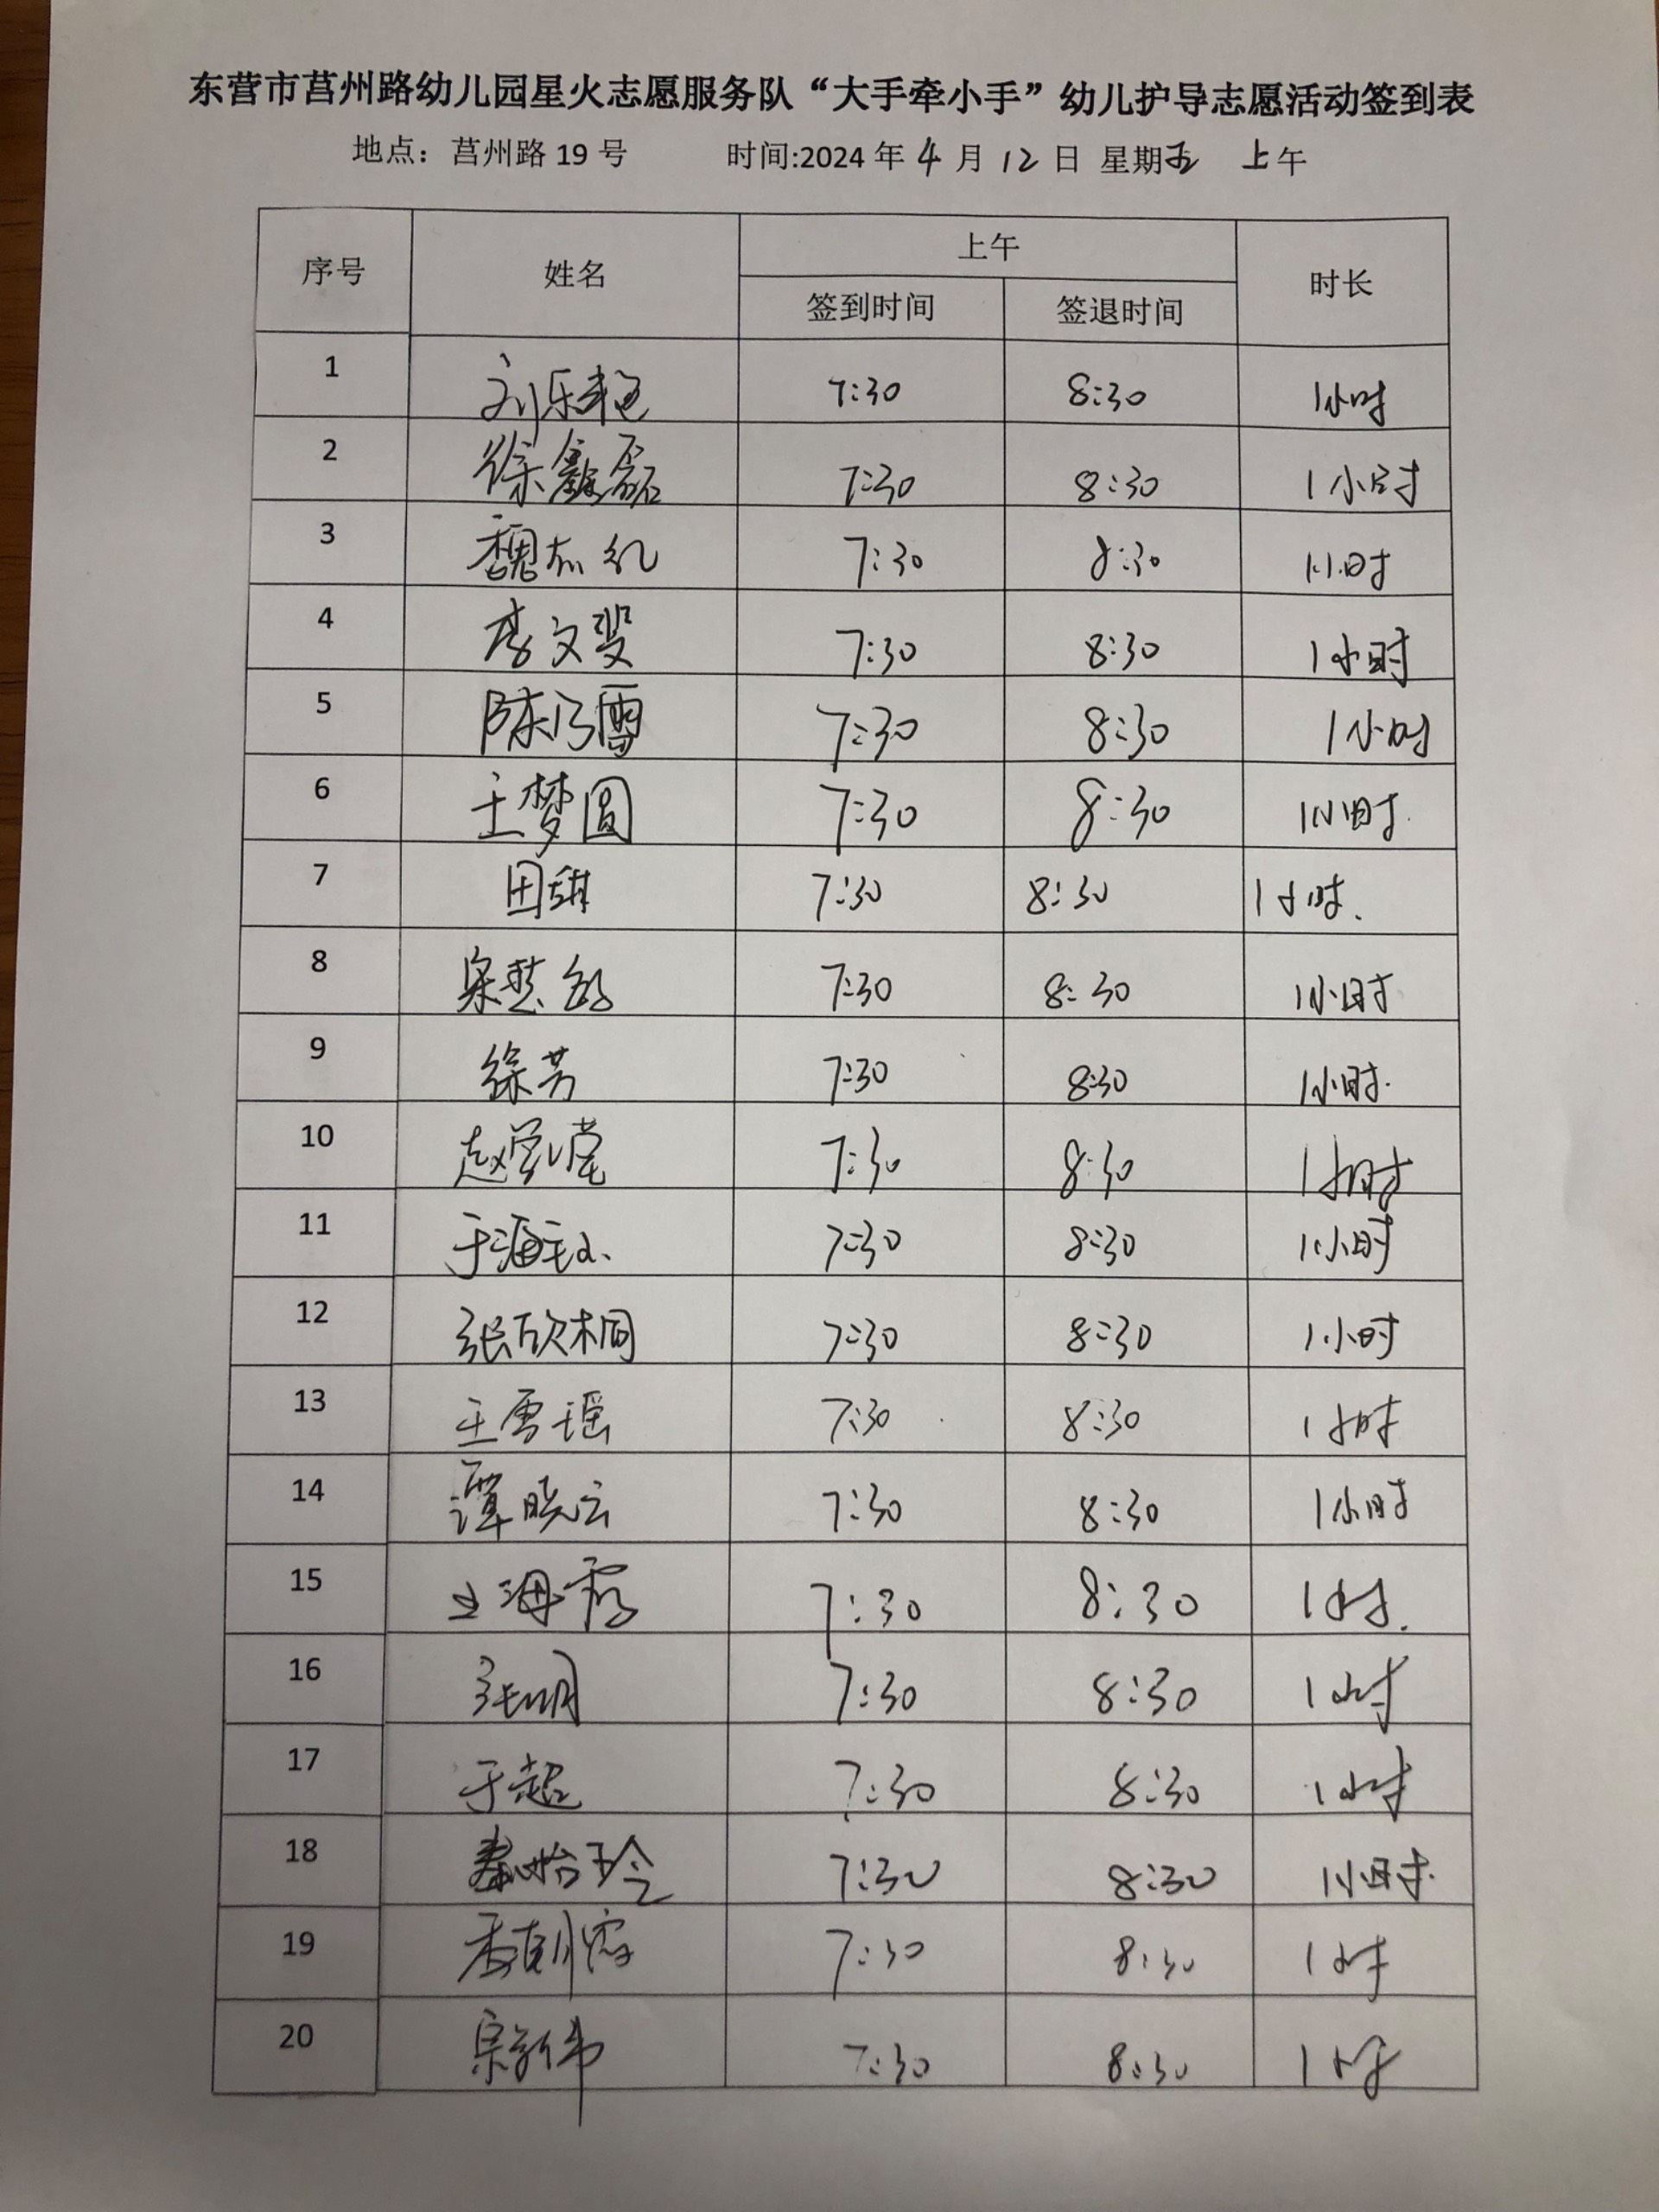 东营市莒州路幼儿园星火志愿服务队“大手牵小手”幼儿护导志愿活动签到表
地点：莒州路 19 号 时间:2024 年 4 月 12 日 星期五 上午
序号 姓名 上午 时长
签到时间 签退时间
1 刘乐 7:30 8:30 1小时
2 徐鑫磊 7:30 8:30 1小时
3 魏 7:30 8:30 1小时
4 李文斐 7:30 8:30 1小时
5 陈乃雪 7:30 8:30 1小时
6 王梦圆 7:30 8:30 1小时.
7 田琪 7:30 8:30 1小时.
8 梁慧 7:30 8:30 1小时
9 徐芳 7:30 8:30 1小时.
10 赵莹莹 7:30 8:30 1小时
11 于海 7:30 8:30 1小时
12 张欣桐 7:30 8:30 1小时
13 王雪瑶 7:30 8:30 1小时
14 谭晓云 7:30 8:30 1小时
15 王海霞 7:30 8:30 1小时.
16 张明 7:30 8:30 1小时
17 于超 7:30 8:30 1小时
18 秦怡玲 7:30 8:30 1小时.
19 7:30 8:30 1小时
20 宗新伟 7:30 8:30 1小时